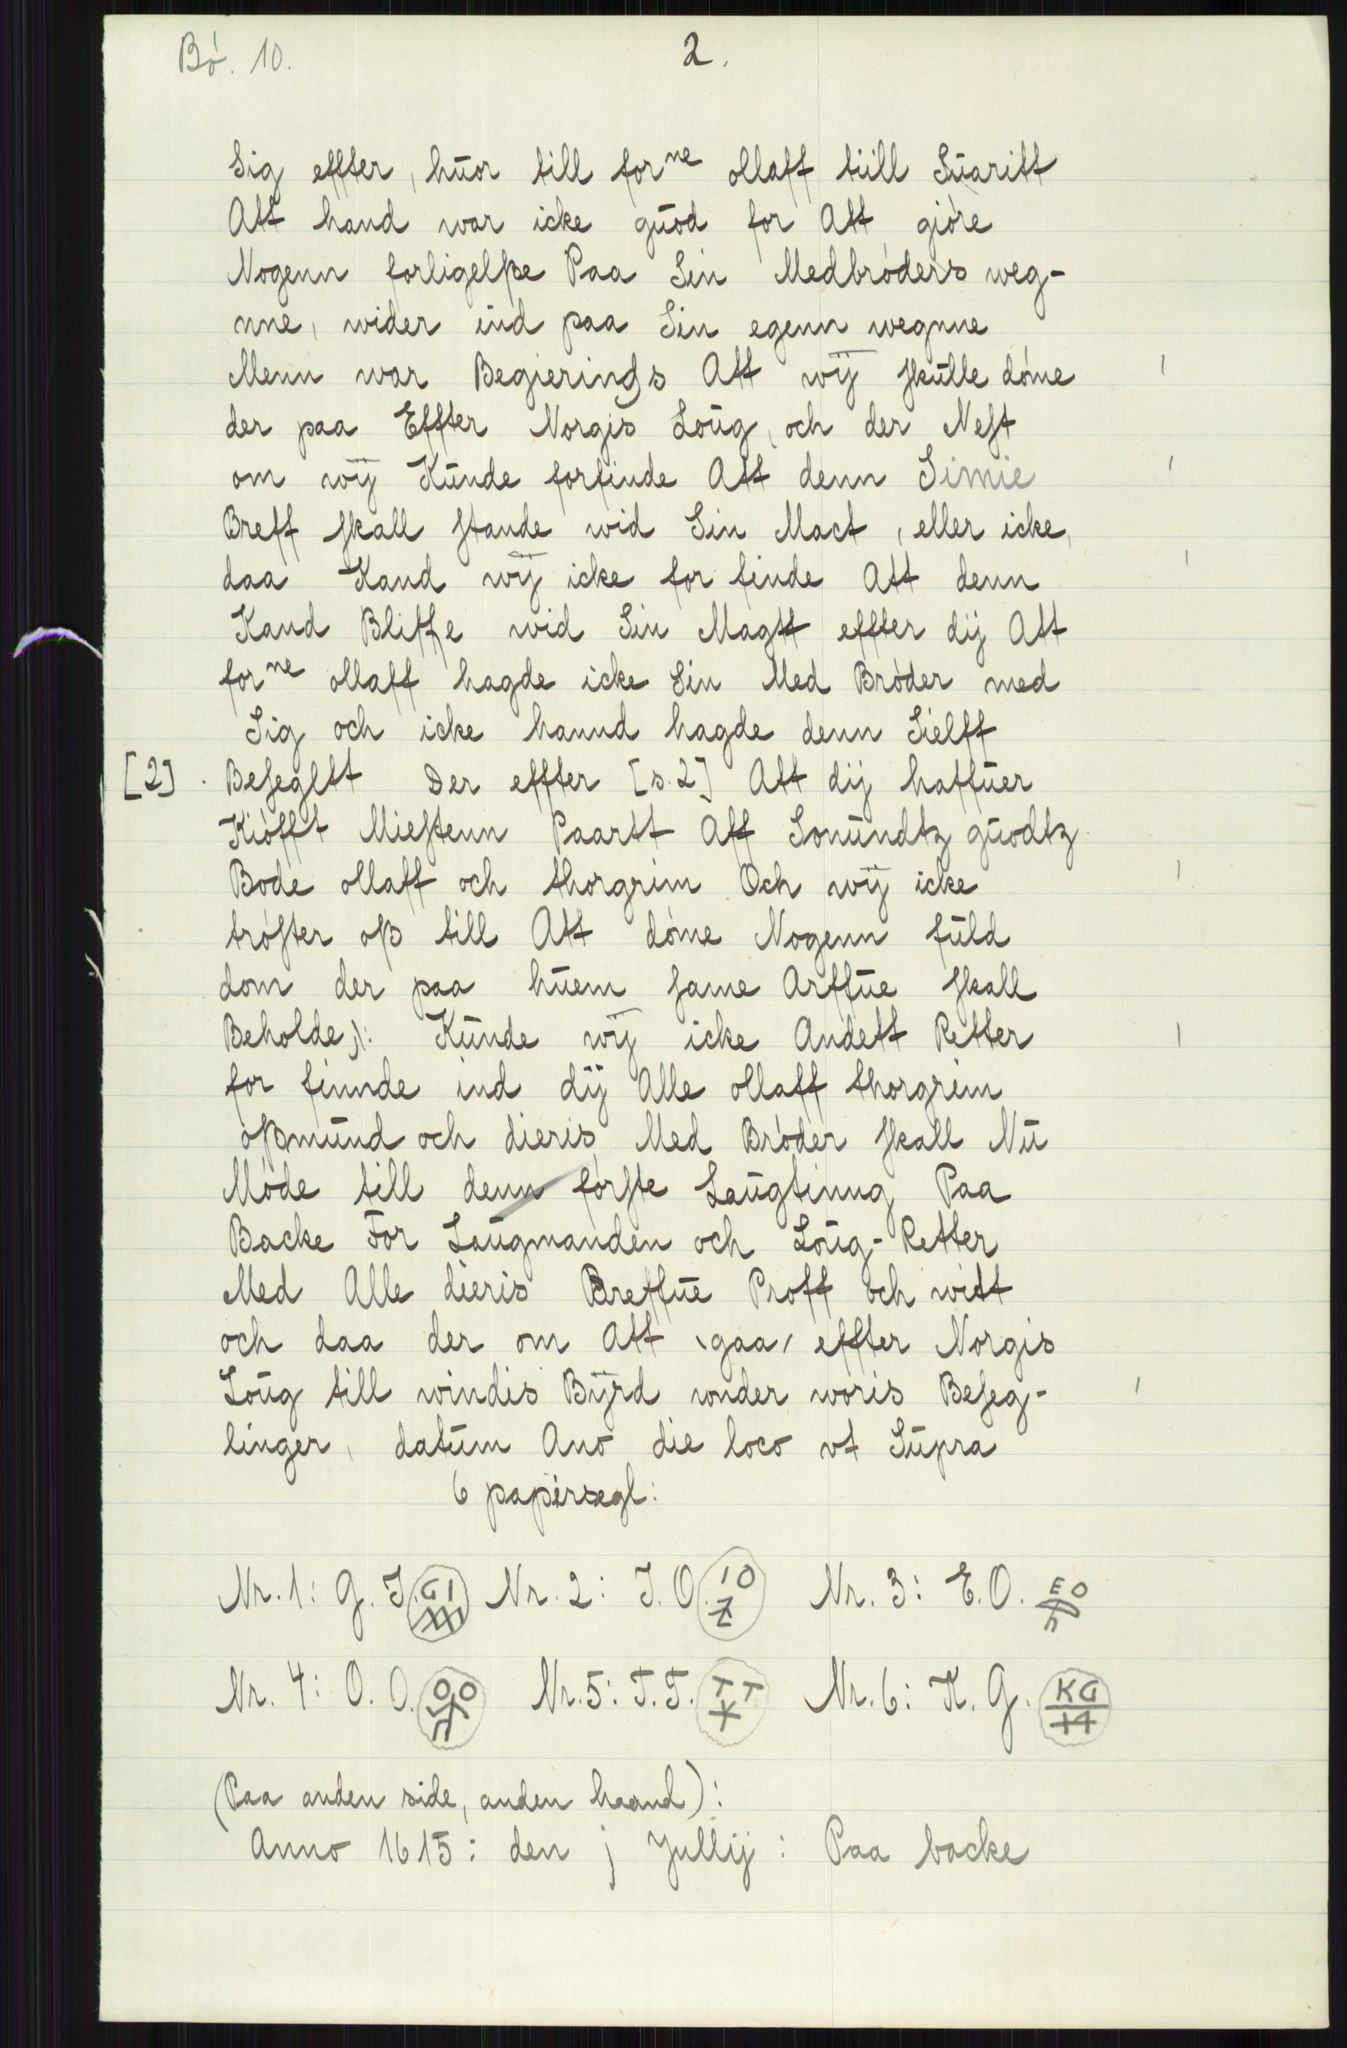 Bø. 10.
2.
Sig effter, huor till forne ollaff tiill Suaritt
Att hand war icke guod for Att giøre
Nogenn forligelße Paa Sin Medbrøders weg-
nne, wider ind paa Sin egenn wegnne
Menn war Begierinds Att wij skulle døme
der paa Effter Norgis Loug, och der Nest
om wij Kunde forfinde Att denn Simie
Breff skall stande wid Sin Mact, eller icke,
daa Kand wij icke for finde Att denn
Kand Bliffe wid Sin Magtt effter dij Att
forne ollaff hagde icke Sin Med Brøder med
Sig och icke hannd hagde denn Sielff
[2] Besegltt Der effter [s. 2] Att dij haffuer
Kiøfft Miestenn Paartt Aff Somundtz guodtz
Bode ollaff och thorgrim Och wij icke
trøster oß till Att døme Nogenn fuld
dom der paa huem same Arffue skall
Beholde): Kunde wij icke Andett Retter
for finnde ind dij Alle ollaff thorgrim
oßmund och dieris Med Brøder skall Nu
Møde till denn første Laugtinng Paa
Backe For Laugmanden och Loug-Retter
Med Alle dieris Breffue Proff och witt
och daa der om Att gaa effter Norgis
Loug till windis Byrd wnder woris Beseg-
linger, datum Ano die loco vt Supra
6 papirsegl:
Nr. 1: G. I. GI Nr. 2: I. O. IO Nr. 3: E. O. EO
Nr. 4: O. O. OO Nr. 5: T. T. TT Nr. 6: K. G. KG
(Paa anden side, anden haand):
Anno 1615: den j Jullij: Paa backe